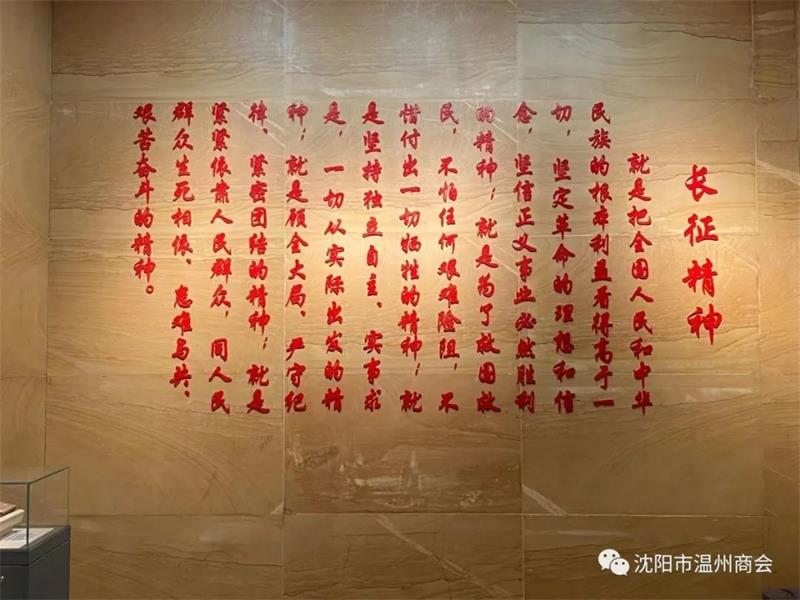 长征精神
就是把全国人民和中华
民族的根本利益看得高于一
切，坚定革命的理想和信
念，坚信正义事业必然胜利
的精神；就是为了救国救
民，不怕任何艰难险阻，不
惜付出一切牺牲的精神；就
是坚持独立自主、实事求
是，一切从实际出发的精
神；就是顾全大局、严守纪
律、紧密团结的精神；就是
紧紧依靠人民群众，同人民
群众生死相依、患难与共、
艰苦奋斗的精神。
沈阳市温州商会